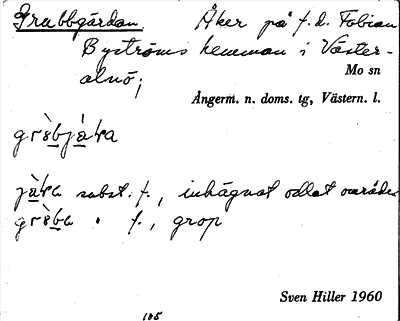 Grubbgärdan. Åker på f.d. Fobian
Byströms hemman i Väster-
alnö;
Mo sn
Ångerm. n. doms. tg, Västern. l.
subst. f., inhägnat odlat område
" f., grop
Sven Hiller 1960
185